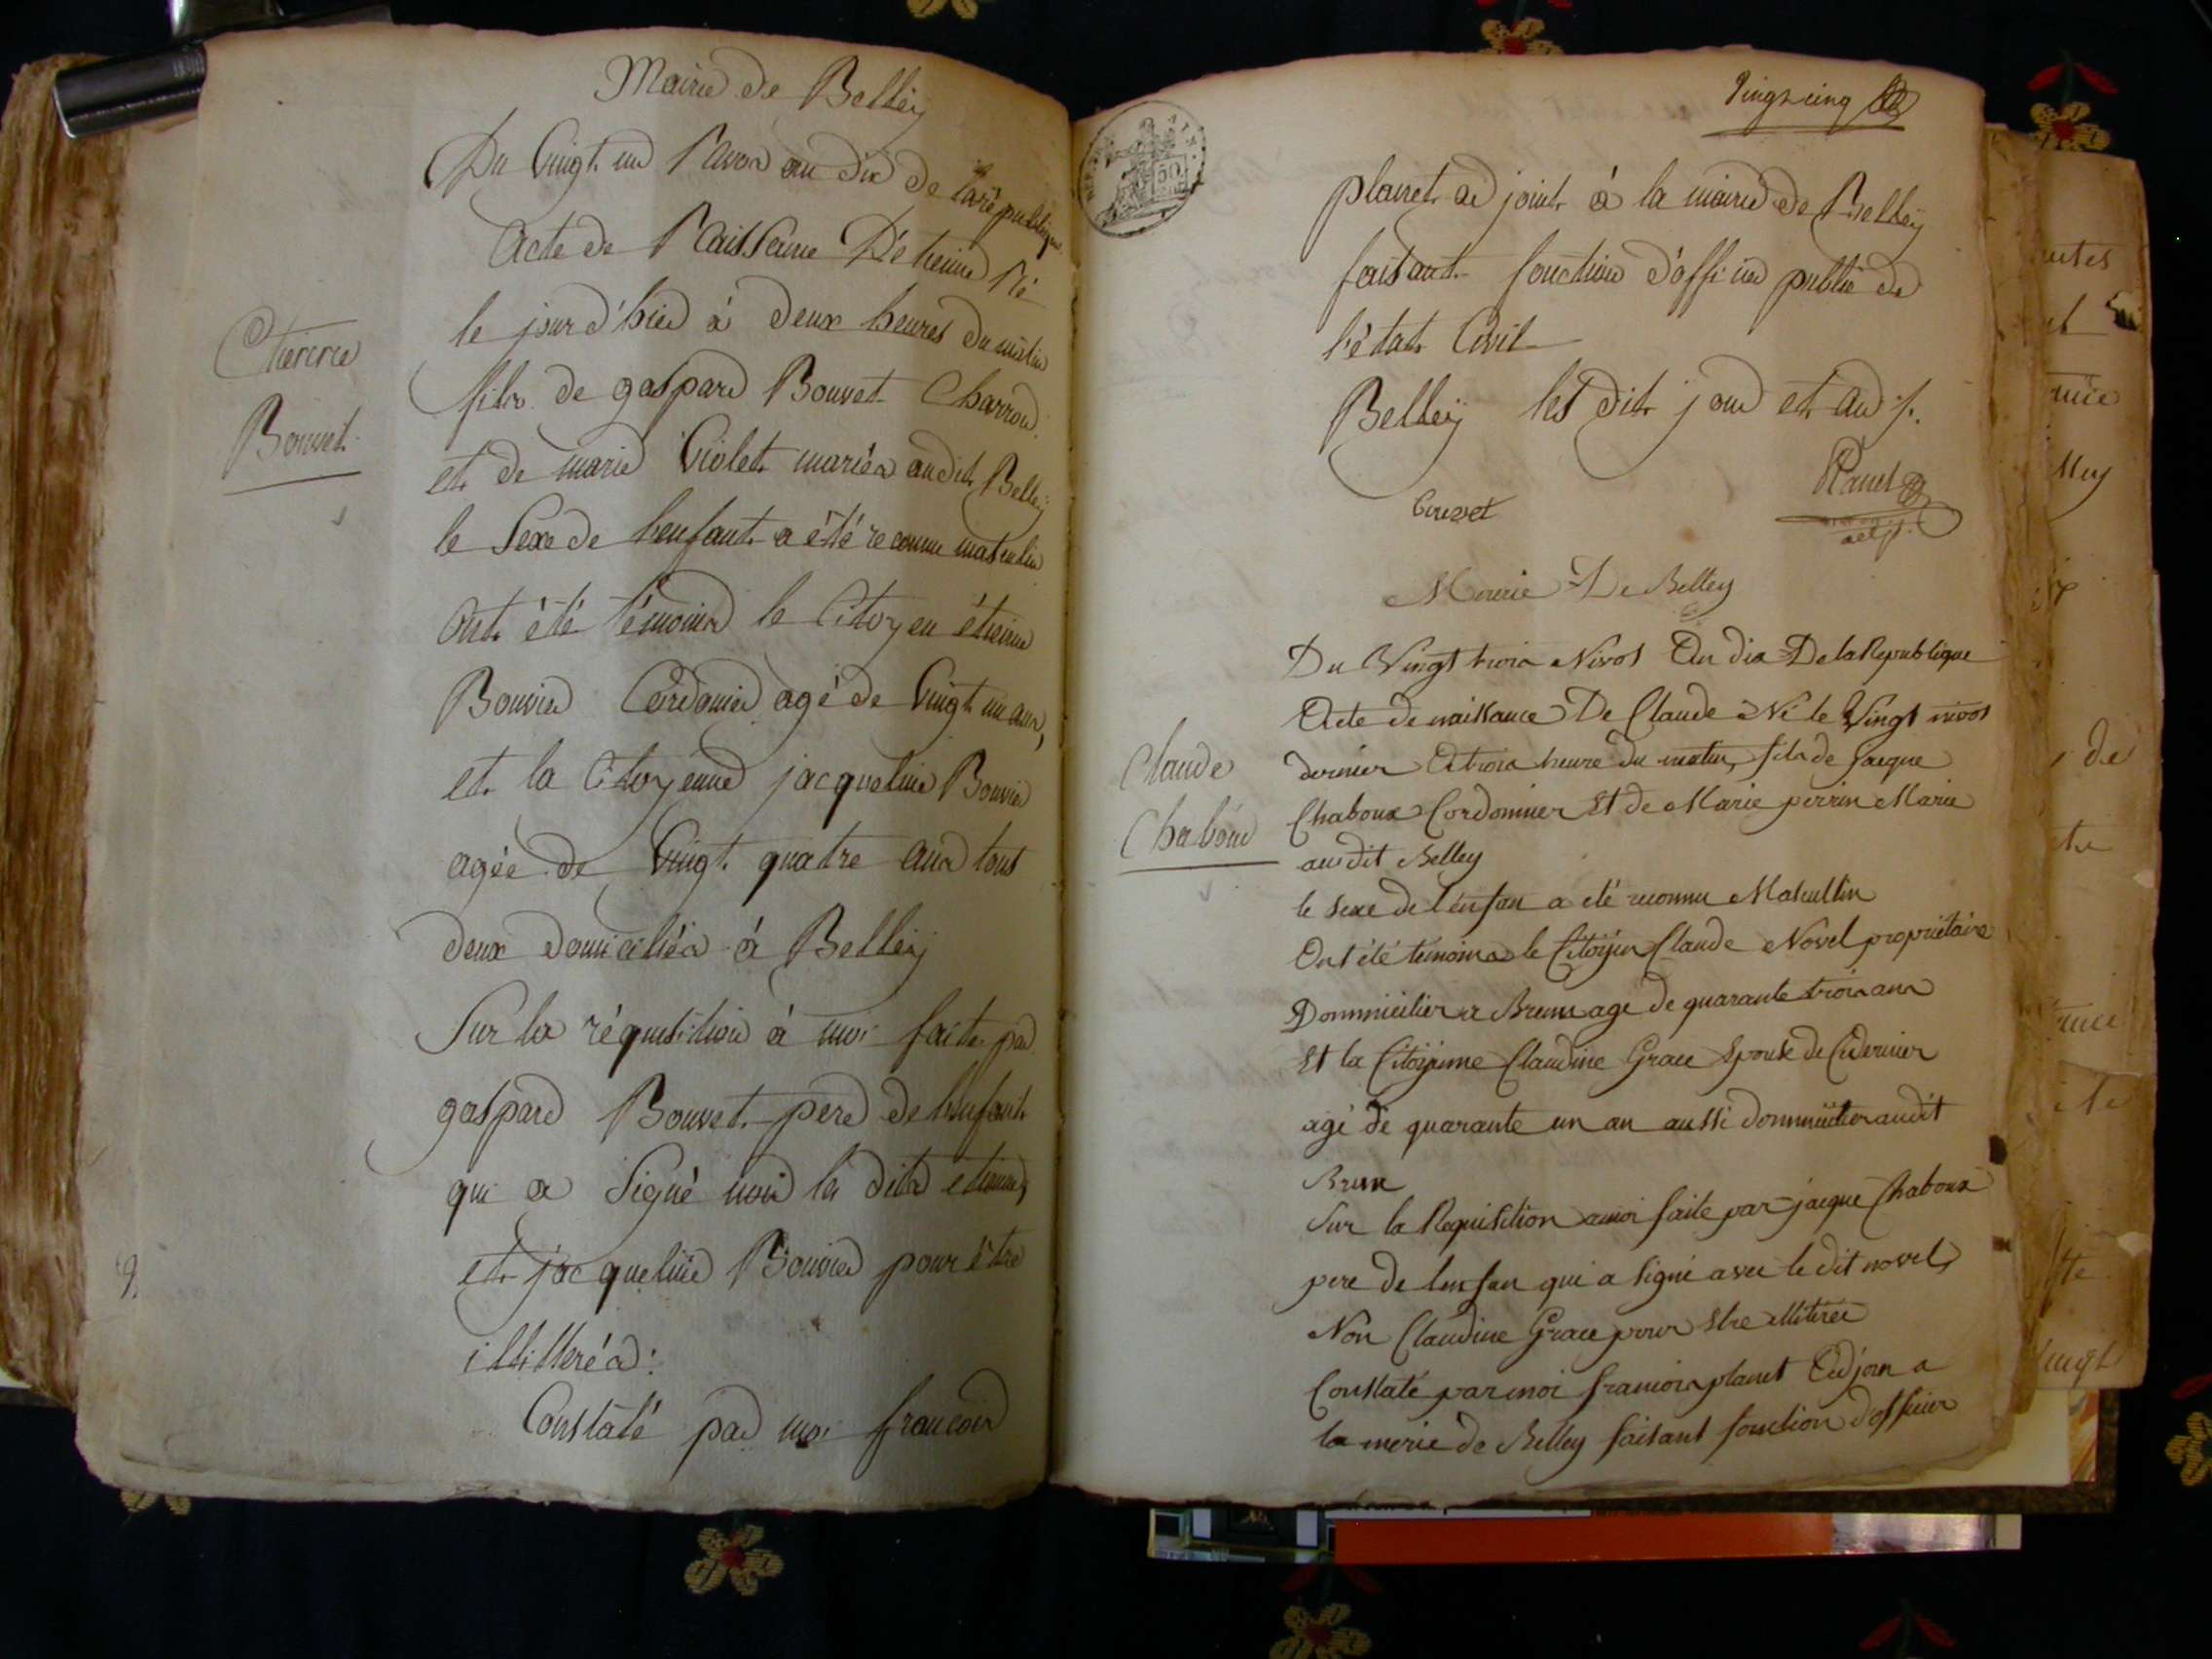 Mairie de Belley
Du Vingt un Nivos an dix de la république
Acte de Naissance D'étienne Né
le jour d'hier à deux heures du matin
fils de gaspard Bouvet Charron
et de marie Violet mariés audit Belley
le Sexe de l'enfant a été reconnu masculin
Ont été témoins le Citoyen étienne
Bouvier Cordonier agé de Vingt un ans,
et la Citoyenne jacqueline Bouvier
agée de Vingt quatre ans tous
deux domiciliés à Belley
Sur la réquisition à moi faite par
gaspard Bouvet pere de l'enfant
qui a Signé non les dits etienne,
et jacqueline Bouvier pour être
illitterés:
Constaté par moi françois
Etienne
Bouvet
Vingt cinq
planet adjoint à la mairie de Belley
faisant fonction d'officier public de
l'état Civil
Belley les dit jour et an
Bouvet
Planet
adjt.
Merie De Belley
Du Vingt trois Nivos An dix De la Republique
Acte de naissance De Claude Né le Vingt nivos
dernier A trois heure du matin, fils de Jacque
Chaboux Cordonnier Et de Marie perrin Marie
audit Belley
le sexe de l'enfan a été reconnu Matcullin
Ont été temoins le Citoÿen Claude Novel proprietaire
Dommicilier a Brens age de quarante trois ans
Et la Citoÿenne Claudine Grace Epouse de Ce dernier
agé de quarante un an aussi dommicilier audit
Brens
Sur la Requisition a moi faite par jacque Chaboux
pere de lenfan qui a signé avec le dit novel,
Non Claudine Grace pour Etre illitérée
Constaté par moi francois planet Adjoin a
la merie de Belley faisant fonction d'officier
Claude
Chaboud